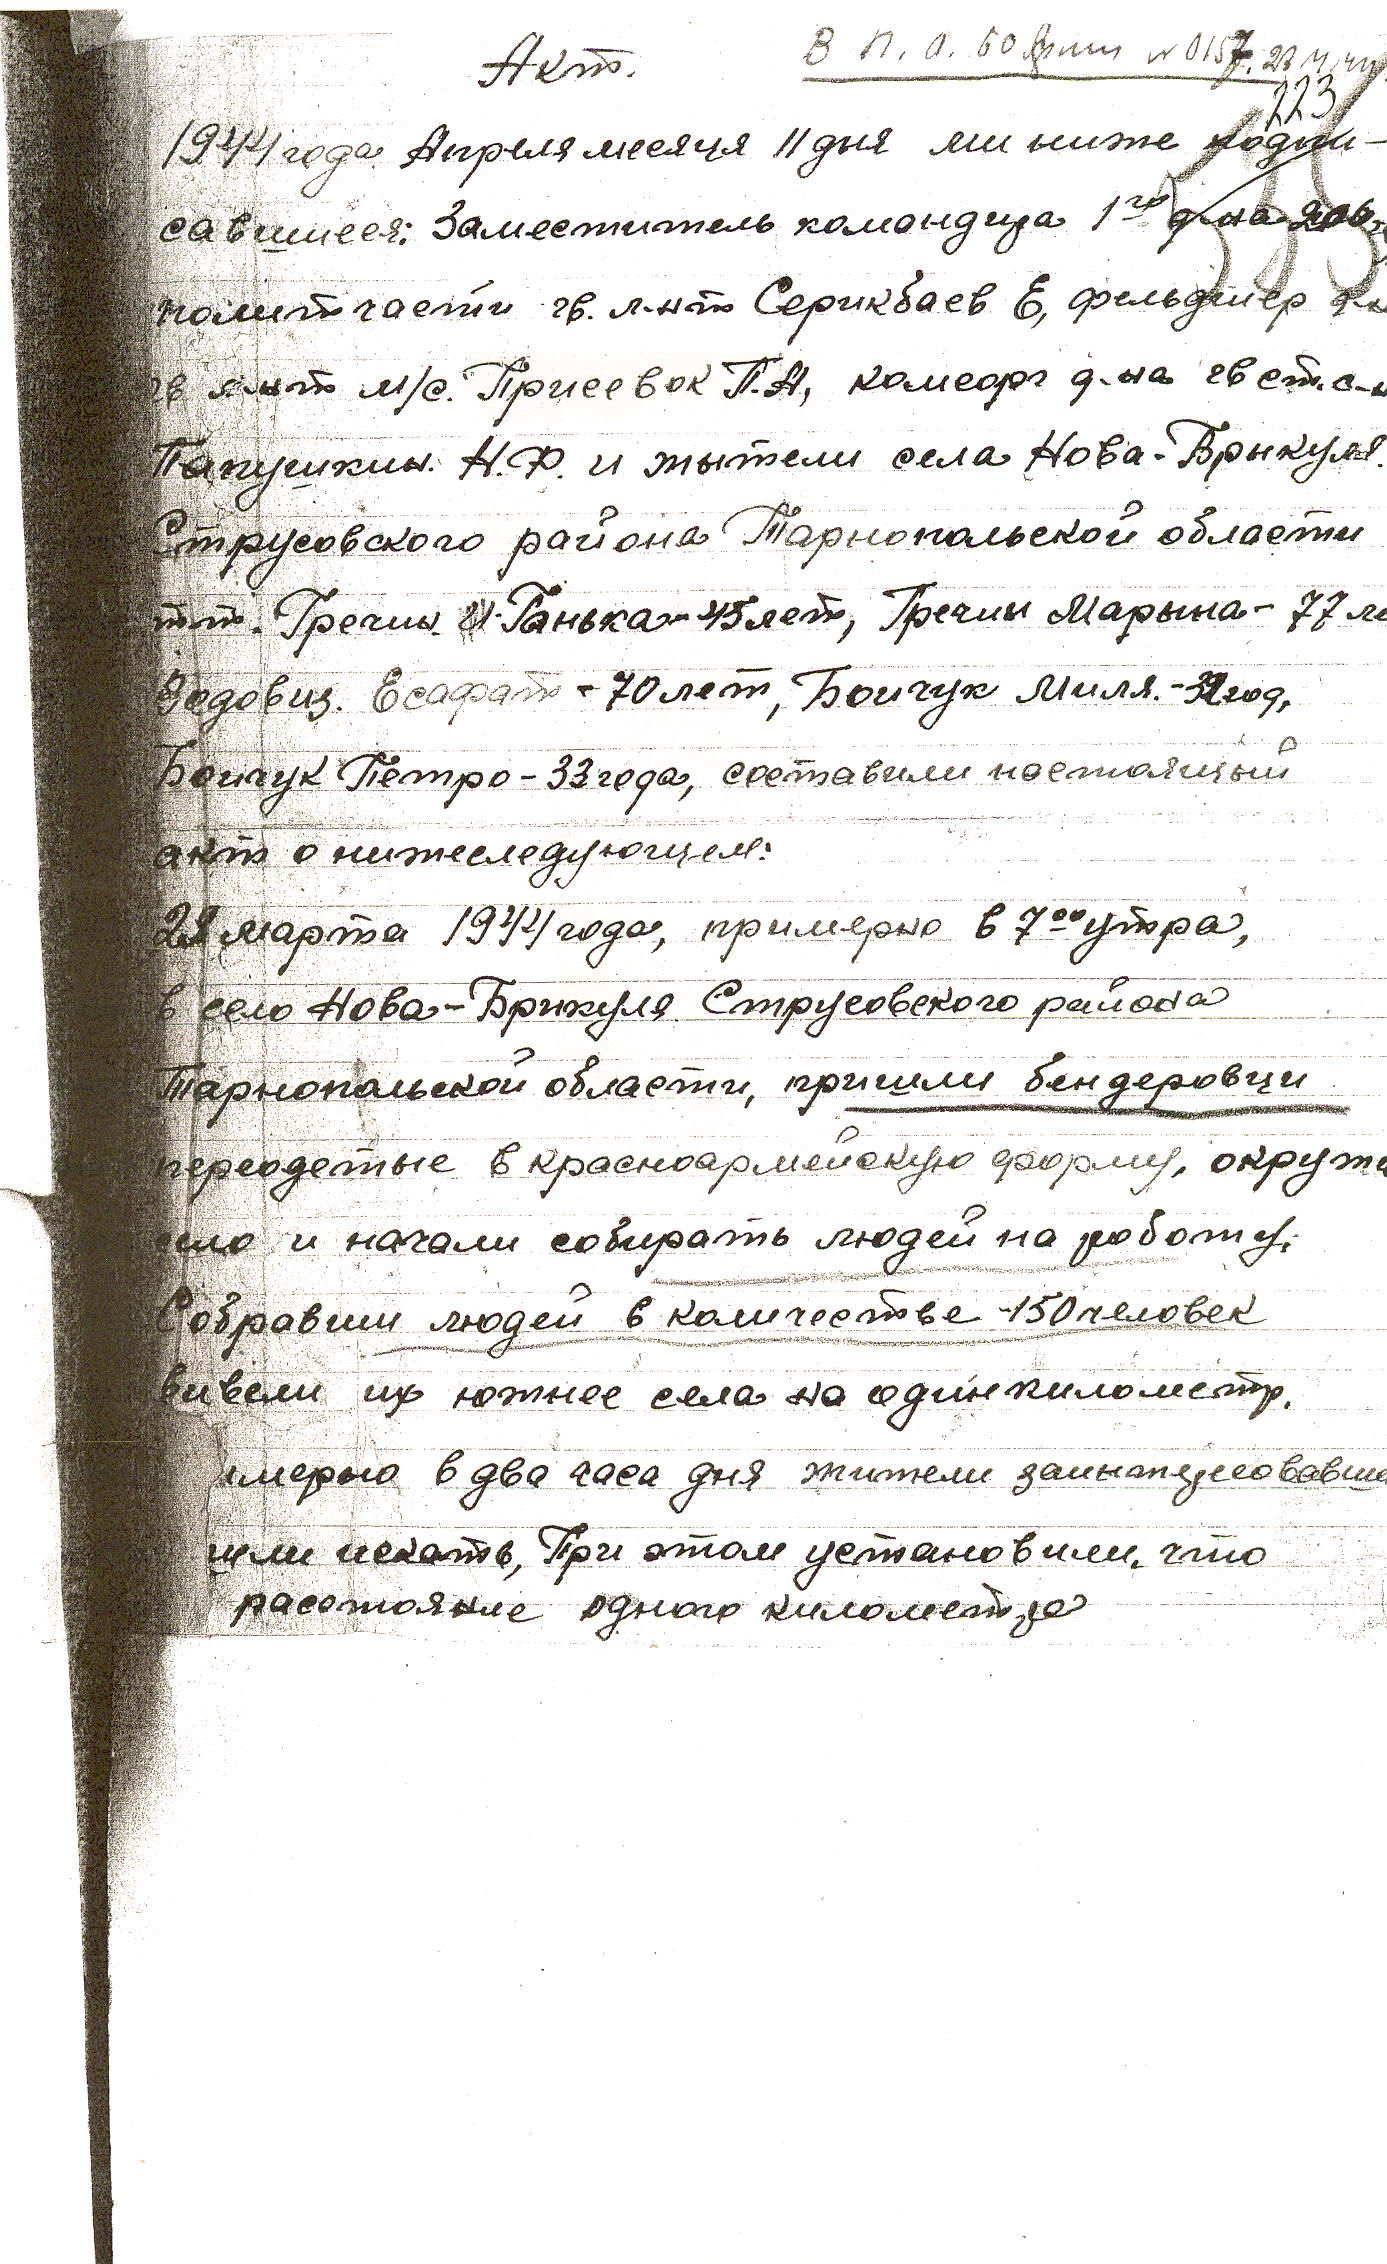 Акт.
В П. О. 60 Армии N 0157. 
223
1944 года Апреля месяця 11 дня ми ниже подпи-
савшиеся: Заместитель командира 1го д-на
политчасти гв. л-нт Серикбаев Е, фельдшер
гв л-нт м/с. Присевок П.А, комсорг д-на гв ст. с-
Папушкин. Н.Ф. и жытели села Нова-Брыкуля.
Струсовского района Тарнопольской области
тт. Гречин. Ганька - 45 лет, Гречин Марына - 77 ле
Есафат - 70 лет, Бойчук Миля. - год,
Бойчук Петро - 33 года, составили настоящый
акт о нижеследующем:
марта 1944 года, примерно в 7⁰⁰ утра,
в село Нова-Брикуля Струсовского района
Тарнопольской области, пришли бендеровци
переодетые в красноармейскую форму, окружи
село и начали собирать людей на роботу.
Собравши людей в количестве - 150 человек
вивели их южнее села на один километр.
имерно в два часа дня жители заинтересовавши
шли искать, При этом установили, что
расстояние одного километра